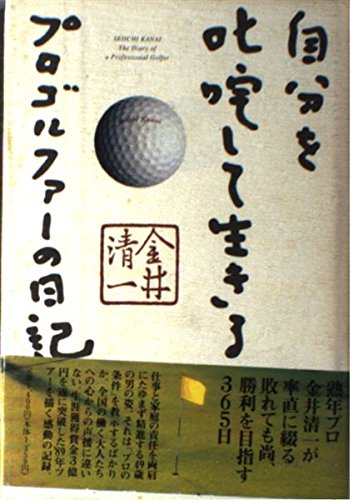 自分を
叱咤して生きる
プロゴルファーの日記
SEIICHI KANAI
The Diary of
a Professional Golfer
金井
清一
熟年プロ
金井清一が
率直に綴る
敗れても尚、
勝利を目指す
365日
仕事と家庭の責任を両肩
にたゆまず精進する49歳
の男の姿。それは、“プロの
条件”を教示するばかり
か、全国の働く人人たち
への心からの声援に違い
ない。生涯獲得賞金3億
円を遂に突破した'89年ツ
アーを描く感動の記録。